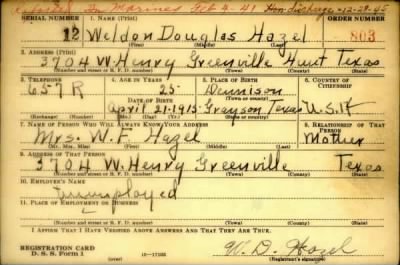 Enlisted In Marines Feb 4-41 Hon discharge-12-28-45
SERIAL NUMBER 1. NAME (Print) ORDER NUMBER
12 Weldon Douglas Hazel 803
(First) (Middle) (Last)
2. ADDRESS (Print)
3704 W. Henry Greenville Hunt Texas
(Number and street or R. F. D. number) (Town) (County) (State)
3. TELEPHONE 4. AGE IN YEARS 5. PLACE OF BIRTH 6. COUNTRY OF CITIZENSHIP
657R 25 Dennison
DATE OF BIRTH
April 21-1915 Grayson Texas U.S.A
(Exchange) (Number) (Mo.) (Day) (Yr.) (Town or county) (State or country)
7. NAME OF PERSON WHO WILL ALWAYS KNOW YOUR ADDRESS 8. RELATIONSHIP OF THAT PERSON
Mrs. W. F. Hazel Mother
(Mr., Mrs., Miss) (First) (Middle) (Last)
9. ADDRESS OF THAT PERSON
3704 W. Henry Greenville Texas
(Number and street or R. F. D. number) (Town) (County) (State)
10. EMPLOYER'S NAME
Unemployed
11. PLACE OF EMPLOYMENT OR BUSINESS
(Number and street or R. F. D. number) (Town) (County) (State)
I AFFIRM THAT I HAVE VERIFIED ABOVE ANSWERS AND THAT THEY ARE TRUE.
REGISTRATION CARD
D. S. S. Form 1 W. D. Hazel
(Registrant's signature)